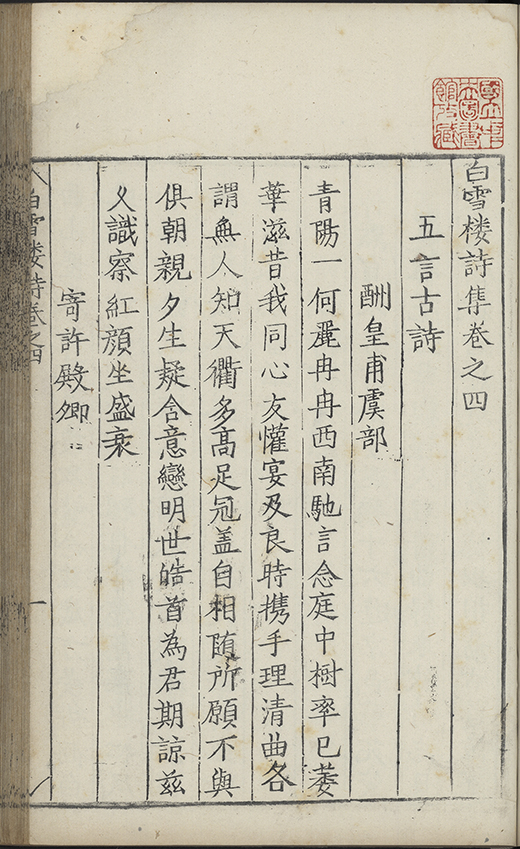 國立中
央圖書
館收藏
白雪楼詩集卷之四
五言古詩
酬皇甫虞部
青陽一何麗冉冉西南馳言念庭中樹率已萎
華滋昔我同心友懽宴及良時携手理清曲各
謂無人知天衢多髙足冠盖自相随所願不與
俱朝親夕生疑含意戀明世皓首為君期諒兹
乆識察紅顔坐盛衰
寄許殿卿
白雪楼詩卷之四
一